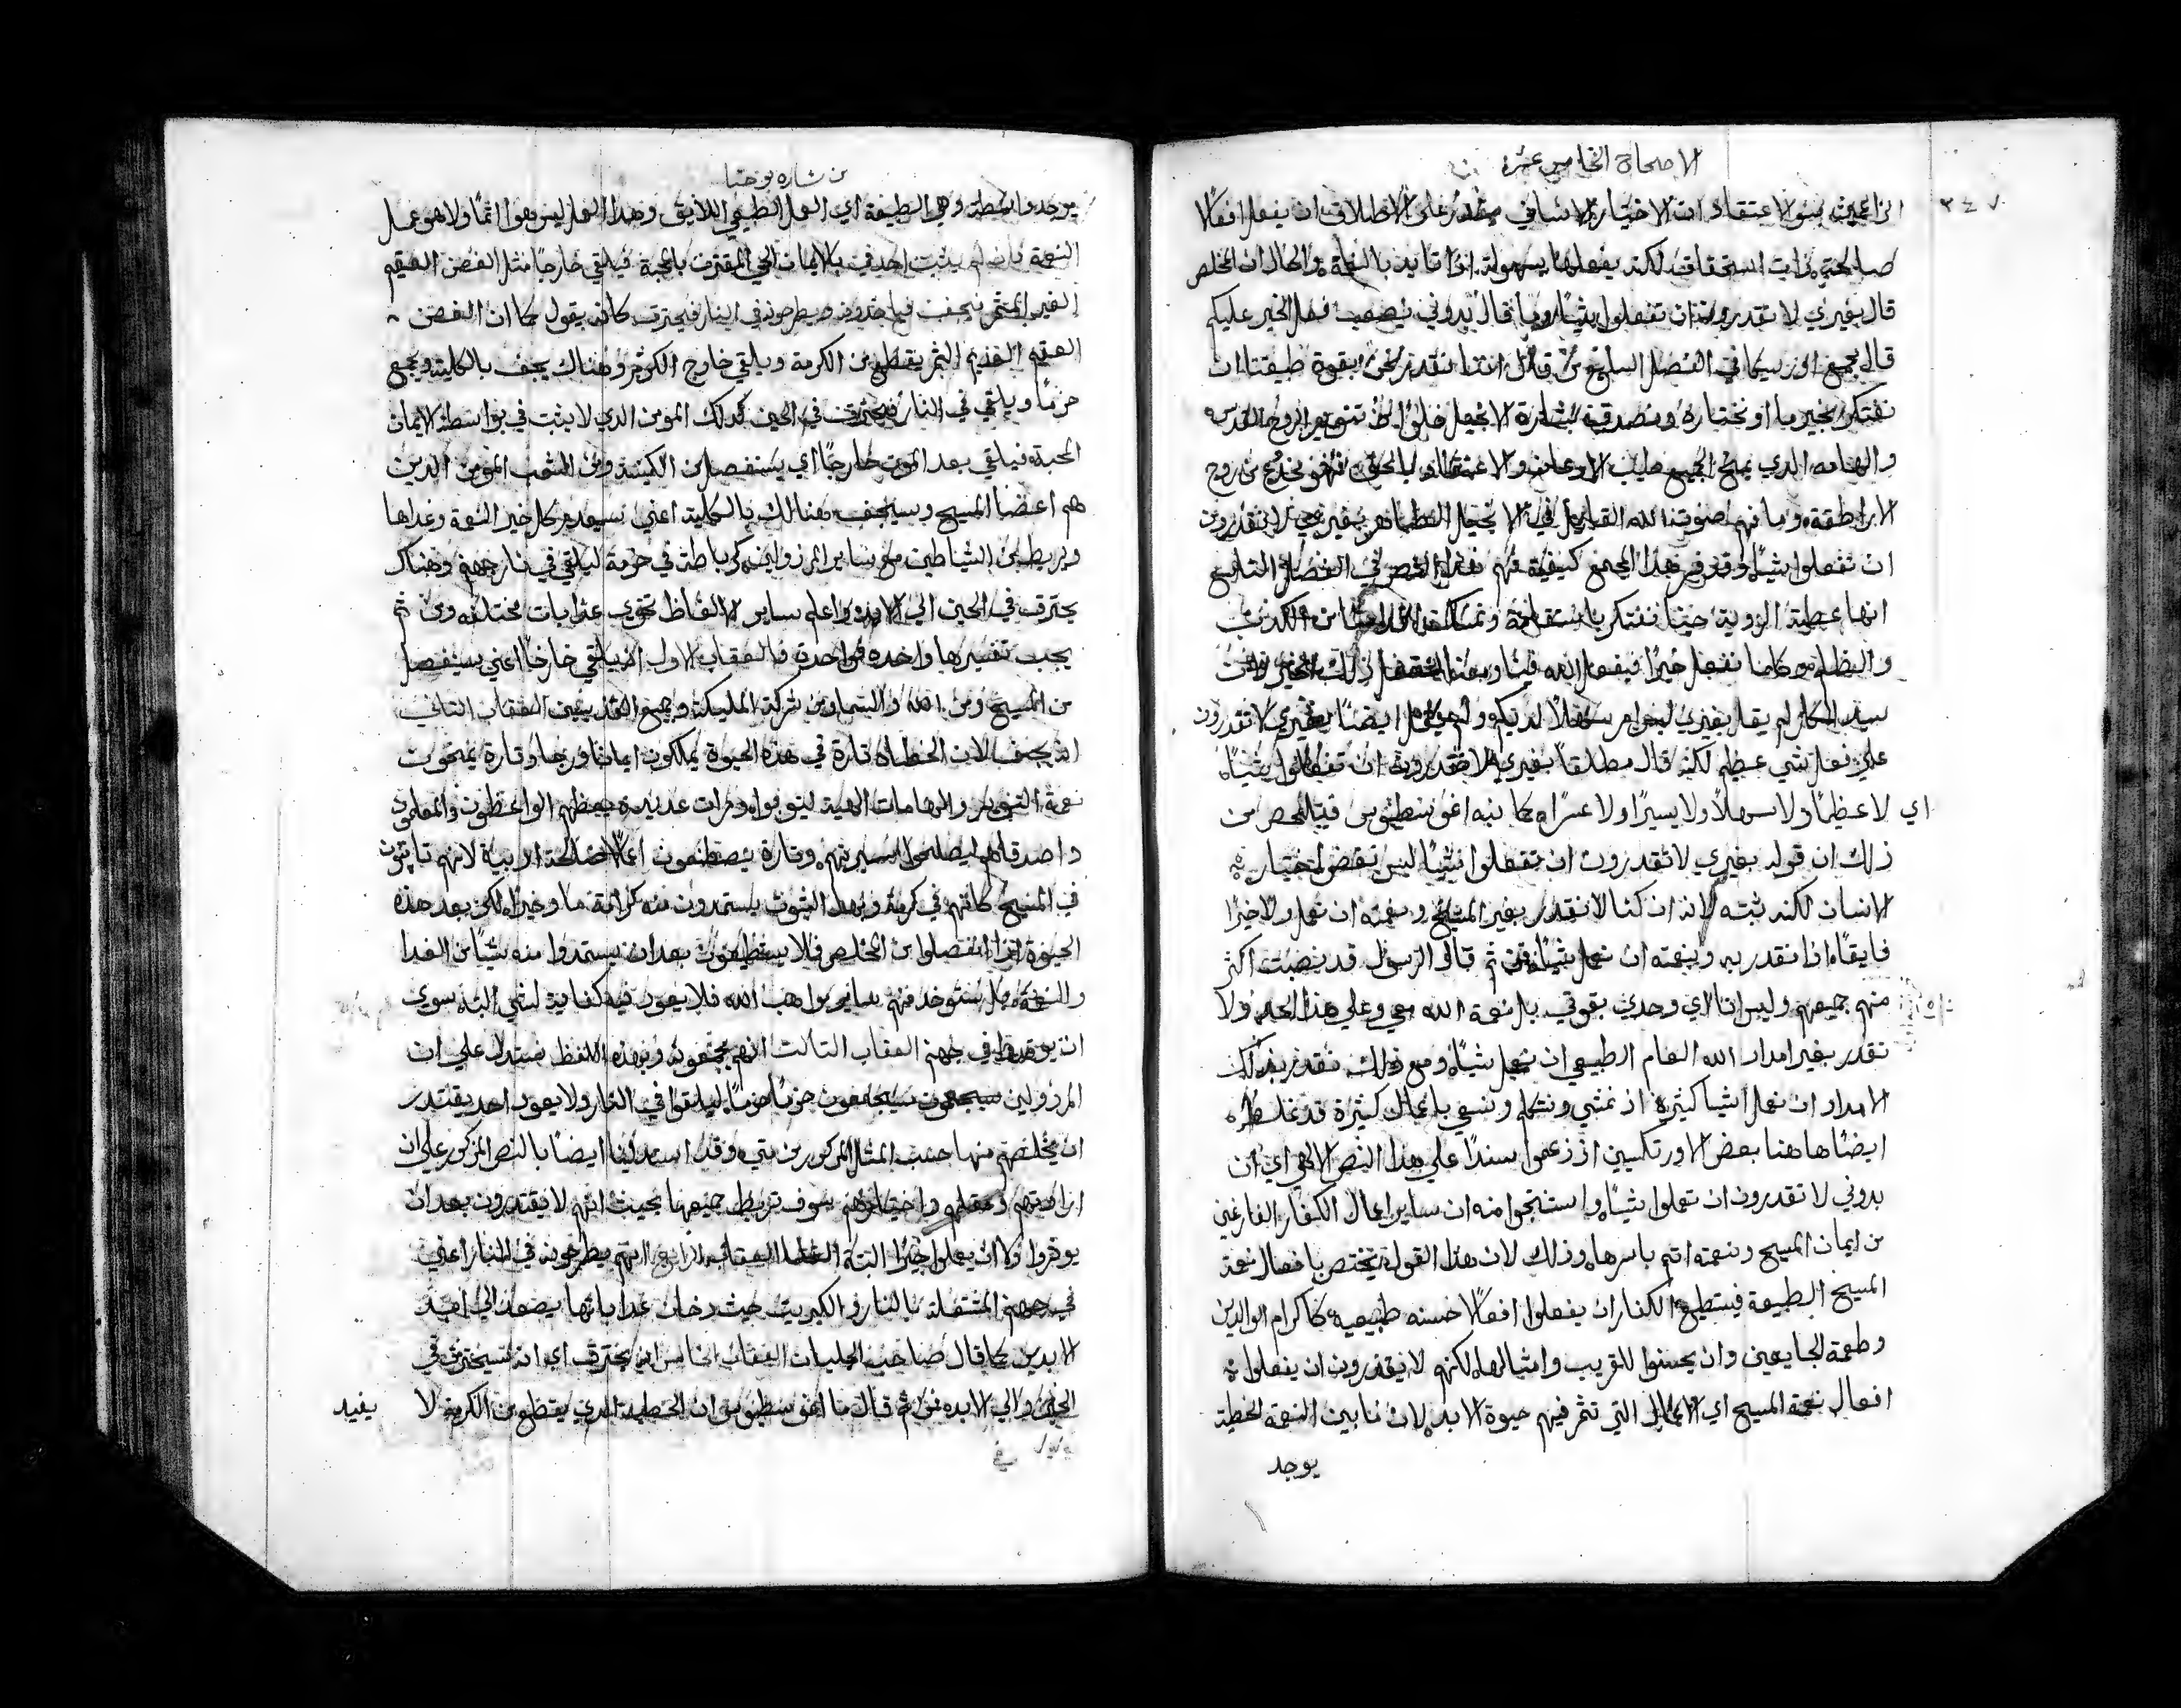 الاصحاح الخامس عشر
٣٤٧
الزاعمين بسو الاعتقاد ان الاختيار الانساني يقدر على الاطلاق ان يفعل افعالًا
صالحة ذات استحقاق لكنه يفعلها بسهولة اذا تايد بالنعمة والحال ان المخلص
قال بغيري لا تقدرون ان تفعلوا شيًا وما قال بدوني يصعب فعل الخير عليكم
قال مجمع في الفصل السابع من قال اننا نقدر نحن بقوة طبيعتنا ان
نفتكر بخير ما او نختاره ونصدق بشارة الانجيل خلوًا من تنوير الروح القدس
والهامه الذي يمنح الجميع الاذعان والاعتقاد بالحق فهو مخدوع من روح
الاراطقة وما فهم صوت الله القايل في الانجيل الطاهر بغيري لا تقدرون
ان تفعلوا شيًا وقد هذا المجمع كيفية فهم هذا النص في الفصل التاسع
انها عطية الهية حينما نفتكر باستقامة ونمسك اقدامنا من الكذب
والظلم كلما نفعل خيرًا فيفعل الله فينا ومعنا لنفعل ذلك الخير
سيد الكل لم يقل بغيري سهلًا لديكم ولم يقل ايضًا بغيري لا تقدرون
على فعل شي عظيم لكنه قال مطلقًا بغيري لا تقدرون ان تفعلوا شيًا
اي لا عظيمًا ولا سهلًا ولا يسيرًا ولا عسرًا كما نبه اغوسطينوس فيتلخص من
ذلك ان قوله بغيري لا تقدرون ان تفعلوا شيًا ليس ينقض اختيار
الانسان لكنه يثبته لانه ان كنا لا نقدر بغير المسيح ونعمته ان نعمل ولا خيرًا
فايقًا اذا نقدر به وبنعمته ان نعمل شيًا ثم قال الرسول قد نصبت اكثر
منهم جميعهم وليس انا اي وحدي بقوتي بل نعمة الله معي وعلى هذا الحد ولا
نقدر بغير امداد الله العام الطبيعي ان نعمل شيًا ومع ذلك نقدر بذلك
الامداد ان نعمل اشيا كثيرة اذ نمشي ونتكلم ونسعي باعمال كثيرة قد غلط
ايضًا هاهنا بعض الاورتكسيين اذ زعموا سندًا على هذا النص الالهي اي ان
بدوني لا تقدرون ان تعملوا شيًا واستنتجوا منه ان ساير اعمال الكفار الفارغين
من ايمان المسيح ونعمته اثم باسرها وذلك لان هذا القول يختص بافعال نعمة
المسيح الطبيعة فيستطيع الكفار ان يفعلوا افعالًا حسنه طبيعيه كاكرام الوالدين
وطعمة الجايعين وان يحسنوا للقريب وامثالها لكنهم لا يقدرون ان يفعلوا
افعال نعمة المسيح اي الاعمال التي تثمر فيهم حيوة الابد لان ما بين النعمة والخطية
يوجد
من بشارة يوحنا
يوجد واسطة وهي الطبيعة اي العمل الطبيعي اللايق وهذا العمل ليس هو اثمًا ولا هو عمل
النعمة فان لم يثبت احد في بالايمان الحي المقترن بالمحبة فيلقي خارجًا مثل الغصن العقيم
الغير المثمر فيجف فياخذونه ويطرحونه في النار فيحترق كانه يقول كما ان الغصن
العقيم العديم الثمر يقطع من الكرمة ويلقي خارج الكرم وهناك يجف بالكلية ويجمع
حزمًا ويلقي في النار فيحترق في الحين كذلك المؤمن الذي لا يثبت في بواسطة الايمان
المحبة فيلقي بعد الموت خارجًا اي يستفصل من الكنيسة ومن الشعب المؤمن الذين
هم اعضا المسيح وسيجف هنالك بالكلية اعني سيعدم كل خير النعمة وغذاها
ويربط من الشياطين مع ساير المرذولين كرباطة في حزمة ليلقي في نار جهنم وهناك
يحترق في الحين الي الابد واعلم ساير الالفاظ تحوي عذابات مختلفه ومن ثم
يجب تفسيرها واحده فواحدة فالعقاب الاول انه يلقي خارجًا اعني يستفصل
من المسيح ومن الله والسما ومن شركة المليكة وجميع القديسين العقاب الثاني
انه يجف لان الخطاة تارة في هذه الحيوة يملكون ايمانًا ورجا وتارة يمنحون
نعمة التنوير والهامات الهية ليتوبوا ومرات عديدة يعظهم الواعظون والمعلمون
واصدقاهم ليصلحوا سيرتهم وتارة يصطنعون اعمالًا صالحة ادبية لانهم ثابتون
في المسيح كانهم في كرمة وبهذا الثبوت يستمدون منه كرامة ما وخيرا لكن بعد هذه
الحيوة اذا انفصلوا من المخلص فلا يستطيعون بعد ان يستمدوا منه شيًا من الغذا
والنعمة بل ستوخذ منهم ساير مواهب الله فلا يعود فيه كفاية لشي البتة سوى
ان يوقد في جهنم العقاب الثالث انهم يجمعون وبهذه اللفظ يستدل على ان
المرذولين سيجمعون حزمًا حزمًا ليلقوا في النار ولا يعود احد يقتدر
ان يخلصهم منها حسب المثل المذكور من متي وقد استدل ايضًا بالنص المذكور على ان
ارادتهم وعقلهم واختيارهم سوف تربط جميعها بحيث انهم لا يقتدرون بعد ان
يوثروا ولا ان يعملوا خيرًا البتة العقاب الرابع انهم يطرحون في النار اعني
في جهنم المشتعلة بالنار والكبريت حيث دخان عذاباتها يصعد الي ابد
الابدين كما قال صاحب الجليان العقاب الخامس انه يحترق اي انه سيحترق في
الحين والي الابد ثم قال اغوسطينوس ان الحطب الذي يقطع من الكرمة لا
يفيد